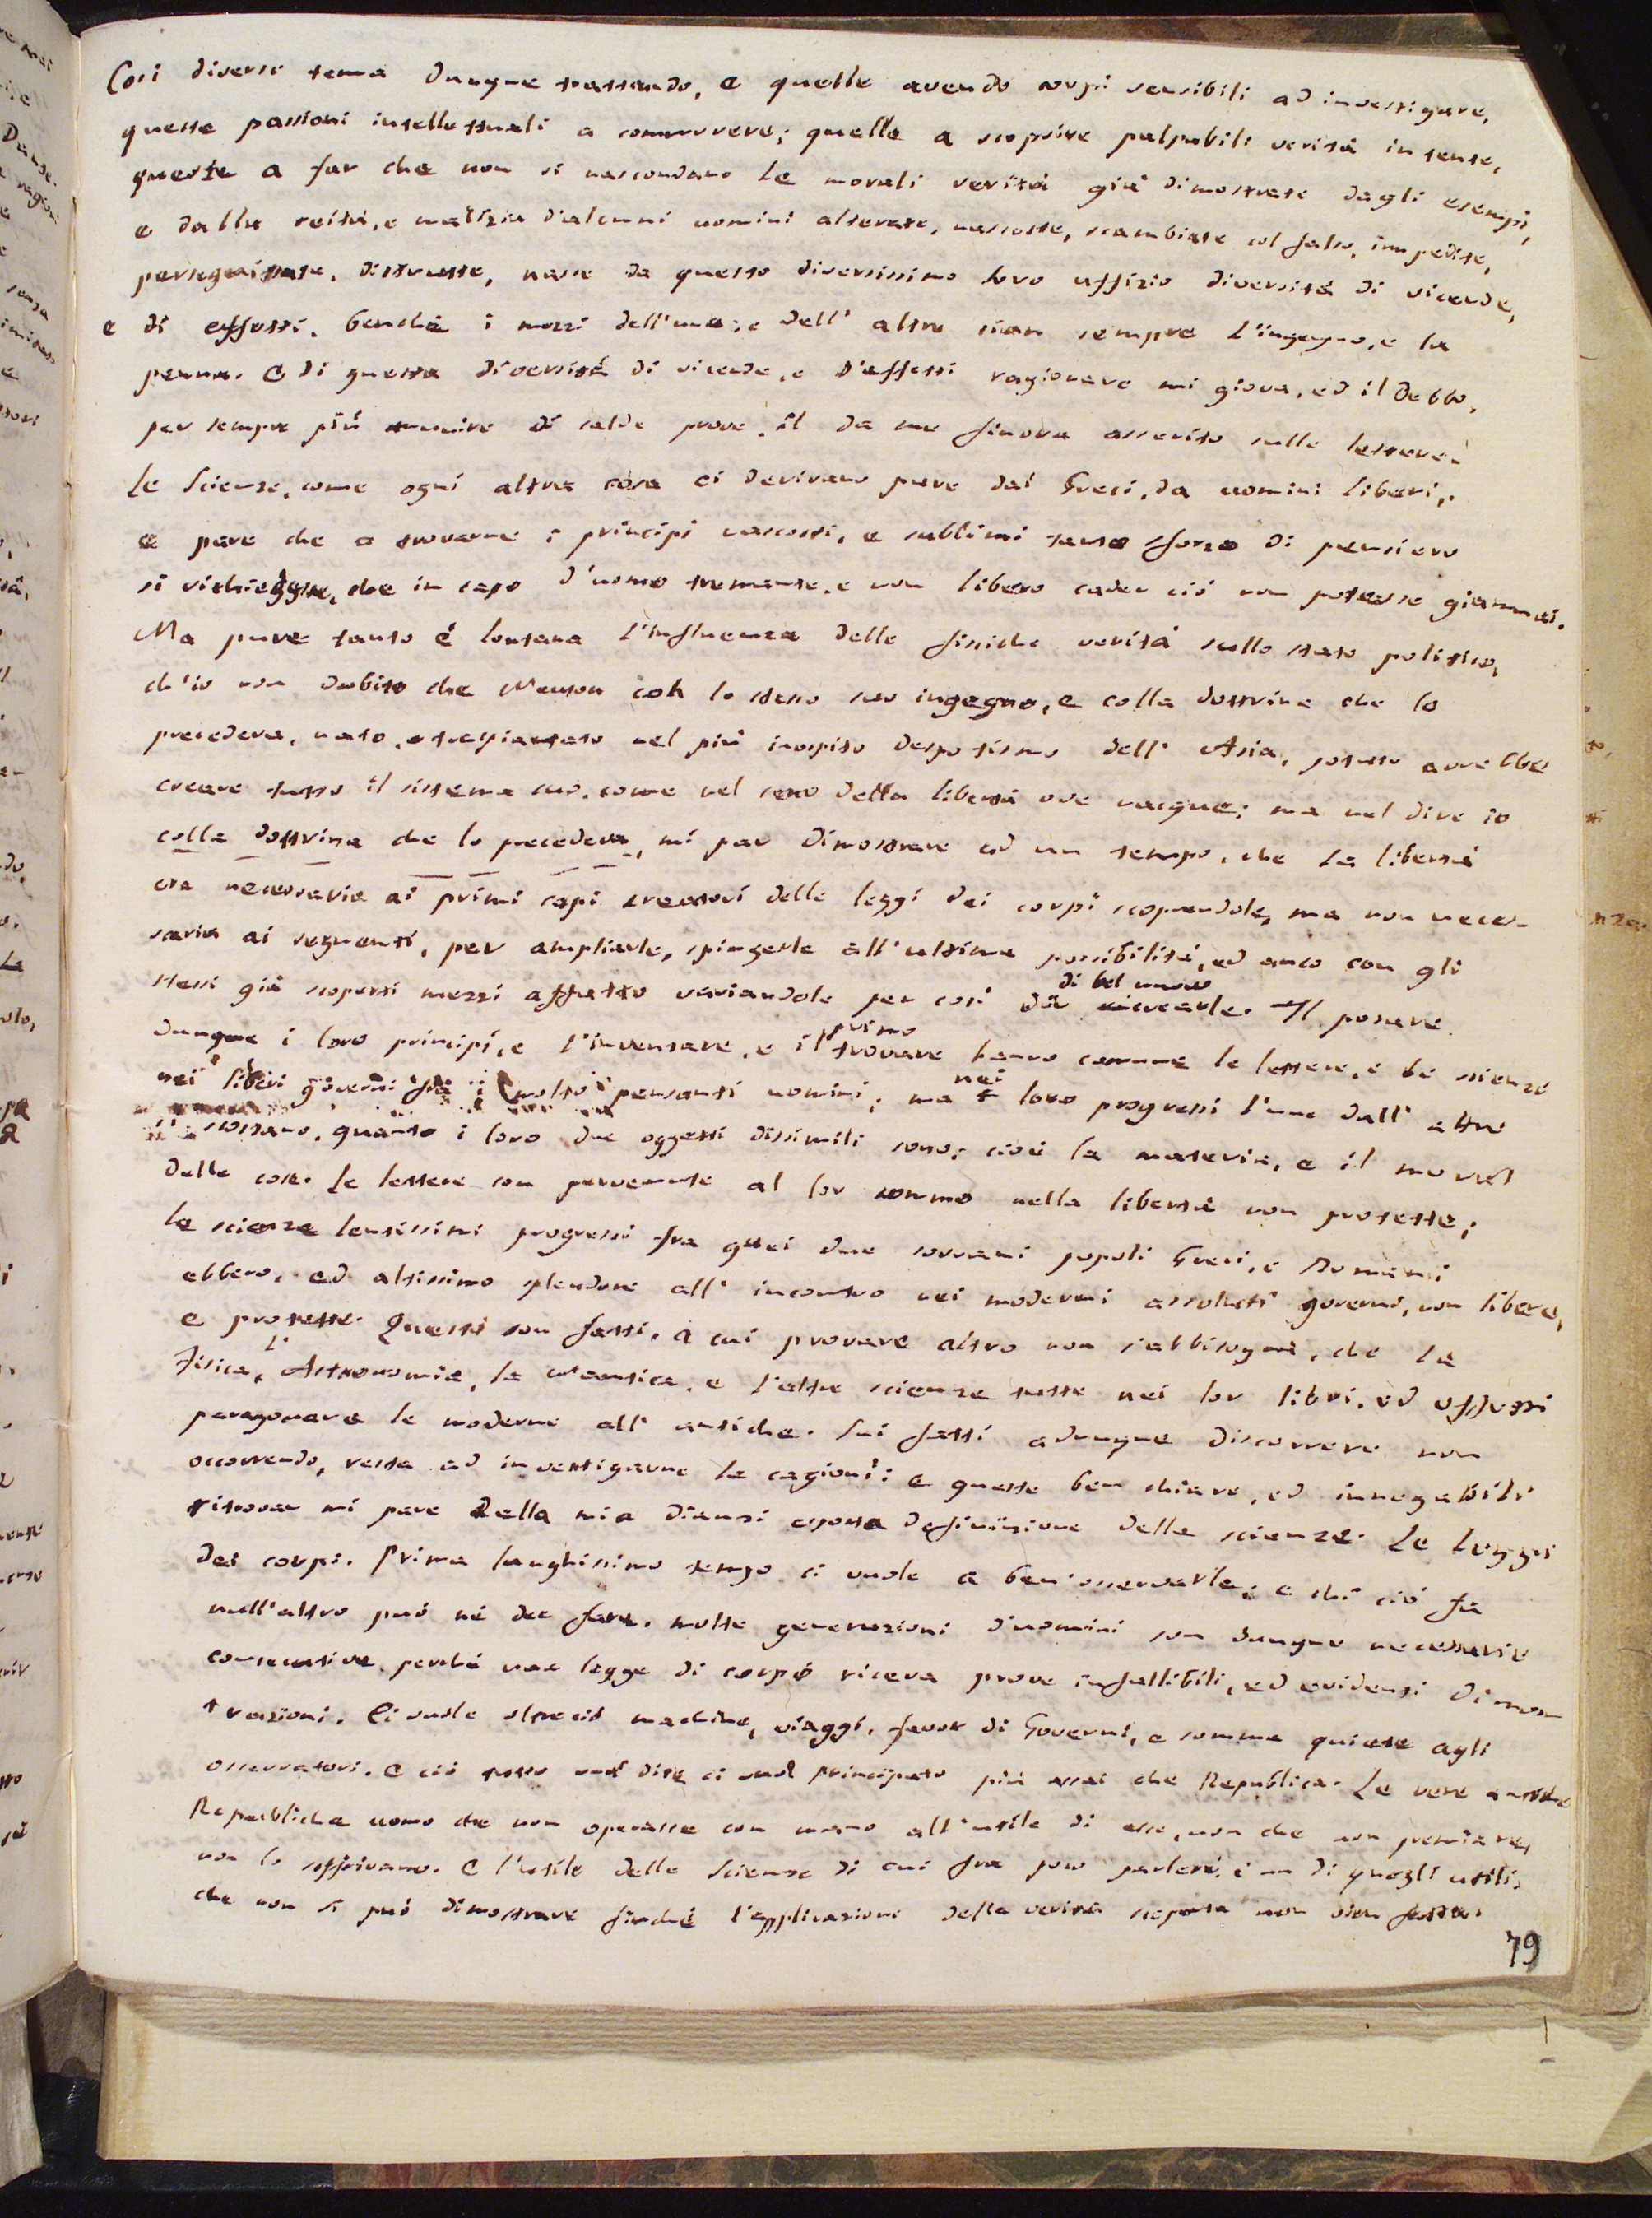 Cosi diversi tema dunque trattando, e quelle avendo corpi sensibili ad investigare,
queste passioni intellettuali a commovere; quelle a scoprire palpabili verità intente,
queste a far che non si nascondano le morali verità già dimostrate dagli esempj,
e dalla reità, e malizia d'alcuni uomini alterate, nascoste, scambiate col falso, impedite,
perseguitate, distrutte, nasce da questo diversissimo loro uffizio diversità di vicende,
e di effetti. benchè i mezzi dell'une, e dell'altre sian sempre l'ingegno, e la
penna. E di questa diversità di vicende, e d'effetti ragionare mi giova, ed il debbo,
per sempre più munire di salde prove il da me finora asserito sulle lettere.
Le Scienze, come ogni altra cosa ci derivano pure dai Greci, da uomini liberi,
e pare che a trovarne i principj nascosti, e sublimi tanto sforzo di pensiero
si richiegga, che in capo d'uomo tremante, e non libero cader ciò non potesse giammai.
Ma pure tanto è lontana l'influenza delle fisiche verità sullo stato politico,
ch'io non dubito che Neuton con lo stesso suo ingegno, e colla dottrina che lo
precedeva, nato, e trapiantato nel più inospito despotismo dell'Asia, potuto avrebbe
creare tutto il sistema suo, come nel seno della libertà ove nacque; ma nel dire io
colla dottrina che lo precedeva, mi par dimostrare ad un tempo, che la libertà
era necessaria ai primi capi creatori delle leggi dei corpi scoprendole, ma non neces-
saria ai seguenti, per ampliarle, spingerle all'ultima possibilità, ed anco con gli
stessi già scoperti mezzi affatto variandole per così dir di bel nuovo ricrearle. Il posare
dunque i loro principj, e l'inventare, e il primo trovare hanno comune le lettere, e le scienze
nei liberi governi fra i molto pensanti uomini; ma nei loro progressi l'une dall'altre
si scostano, quanto i loro due oggetti dissimili sono; cioè la materia, e il morale
delle cose. Le lettere son pervenute al lor sommo nella libertà non protette;
le scienze lentissimi progressi fra quei due sovrani popoli Greci, e Romani
ebbero, ed altissimo splendore all'incontro nei moderni assoluti governi, non libere,
e protette. Questi son fatti, a cui provare altro non s'abbisogna, che la
Fisica, l'Astronomia, la Nautica, e l'altre scienze tutte nei lor libri, ed effetti
paragonare le moderne all'antiche. Sui fatti adunque discorrere non
occorrendo, resta ad investigarne le cagioni: e queste ben chiare, ed innegabili
ritrovar mi pare nella mia dianzi esposta definizione delle scienze. Le leggi
dei corpi. Prima lunghissimo tempo ci vuole a ben'osservarle; e chi ciò fa
null'altro può nè dee fare. molte generazioni d'uomini son dunque necessarie
consecutive, perchè una legge di corpo riceva prove infallibili, ed evidenti dimos
trazioni. Ci vuole oltreciò machine, viaggi, favor di Governi, e somma quiete agli
osservatori. E ciò tutto vuol dire ci vuol principato più assai che Republica. Le vere antiche
Republiche uomo che non operasse con mano all'utile di esse, non che non premiare,
non lo soffrivano. E l'utile delle Scienze di cui fra poco parlerò, è un di quegli utili,
che non si può dimostrare finchè l'applicazione della verità scoperta non vien fatta.
79